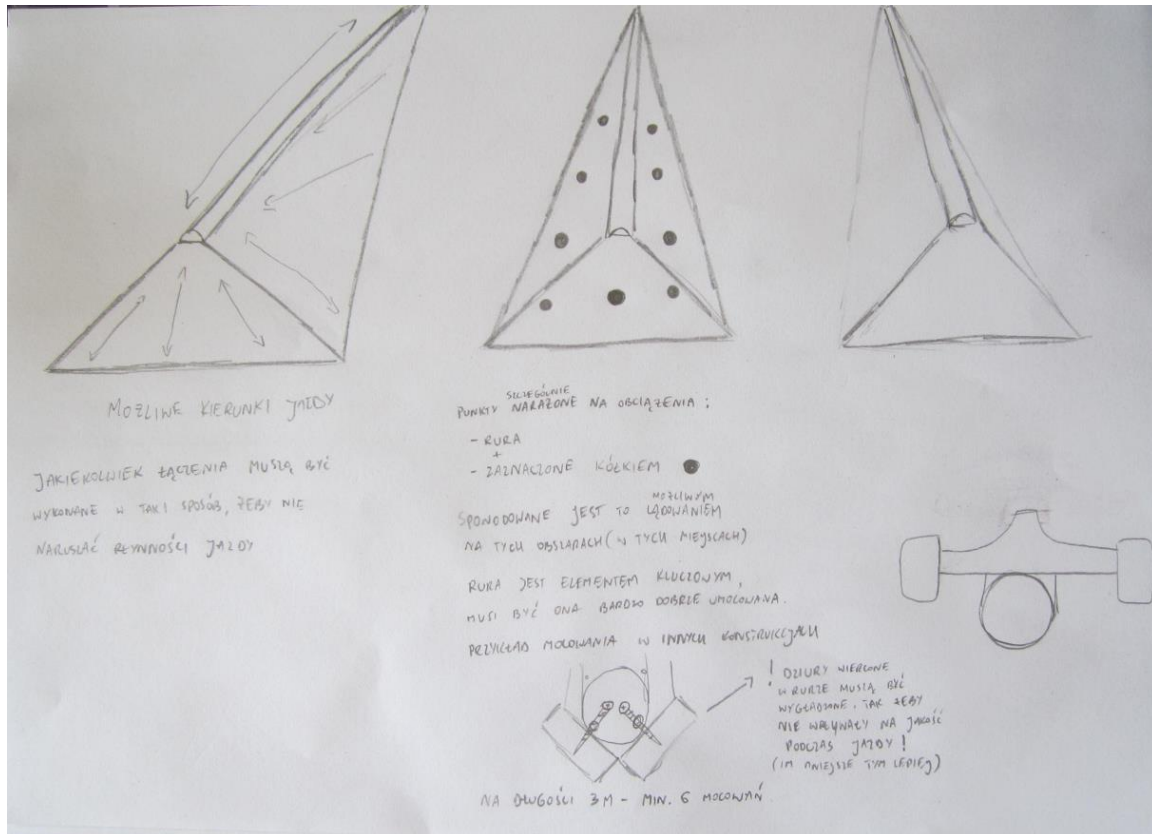 MOŻLIWE KIERUNKI JAZDY
JAKIEKOLWIEK ŁĄCZENIA MUSZĄ BYĆ
WYKONANE W TAKI SPOSÓB, ŻEBY NIE
NARUSZAĆ PŁYNNOŚCI JAZDY
SZCZEGÓLNIE
PUNKTY NARAŻONE NA OBCIĄŻENIA :
- RURA
+
- ZAZNACZONE KÓŁKIEM
MOŻLIWYM
SPOWODOWANE JEST TO LĄDOWANIEM
NA TYCH OBSZARACH (W TYCH MIEJSCACH)
RURA JEST ELEMENTEM KLUCZOWYM,
MUSI BYĆ ONA BARDZO DOBRZE UMOCOWANA.
PRZYKŁAD MOCOWANIA W INNYCH KONSTRUKCJACH
! DZIURY WIERCONE
W RURZE MUSZĄ BYĆ
WYGŁADZONE, TAK ŻEBY
NIE WPŁYWAŁY NA JAKOŚĆ
PODCZAS JAZDY !
(IM MNIEJSZE TYM LEPIEJ)
NA DŁUGOŚCI 3M - MIN. 6 MOCOWAŃ